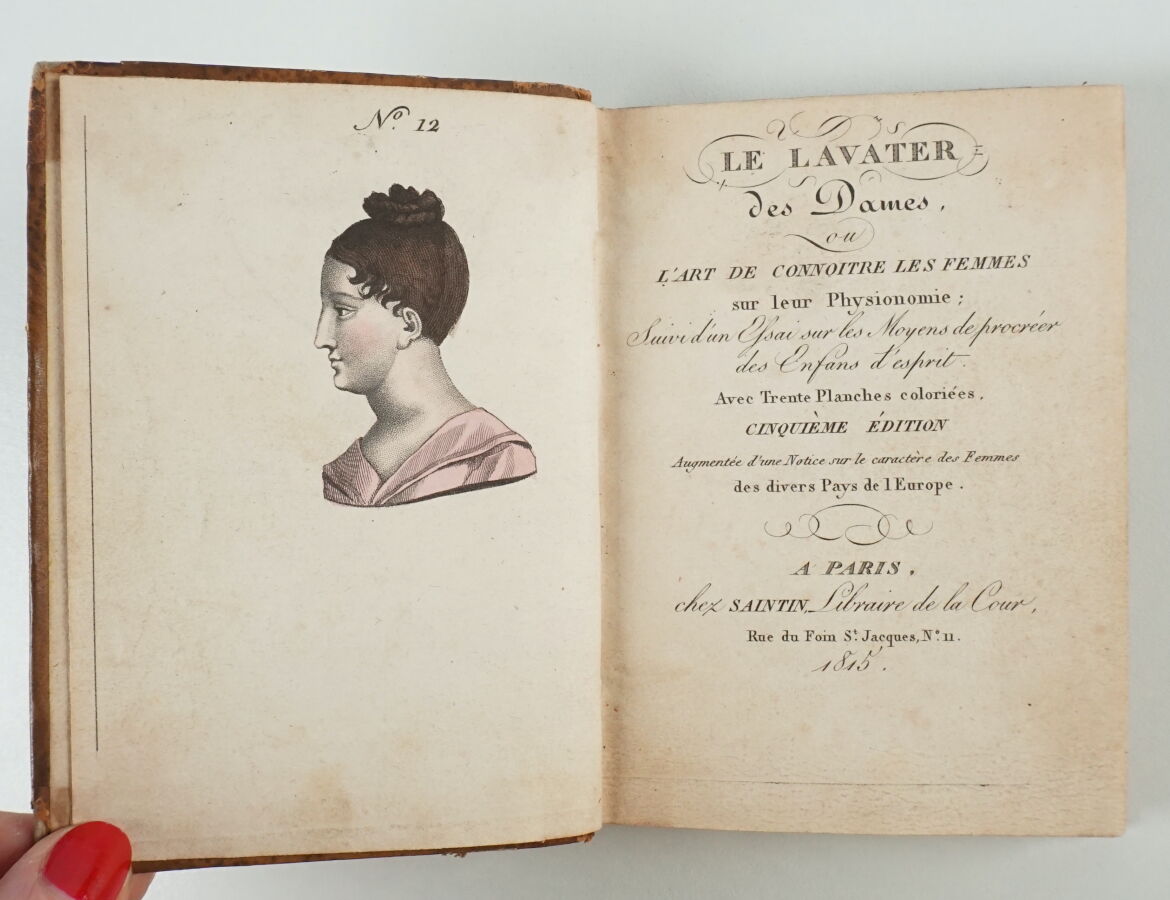 Nº. 12
LE LAVATER
des Dames,
ou
L'ART DE CONNOITRE LES FEMMES
sur leur Physionomie;
Suivi d'un Essai sur les Moyens de procréer
des Enfans d'esprit.
Avec Trente Planches coloriées.
CINQUIÈME ÉDITION
Augmentée d'une Notice sur le caractère des Femmes
des divers Pays de l'Europe.
A PARIS,
chez SAINTIN, Libraire de la Cour,
Rue du Foin St. Jacques, Nº. 11.
1815.